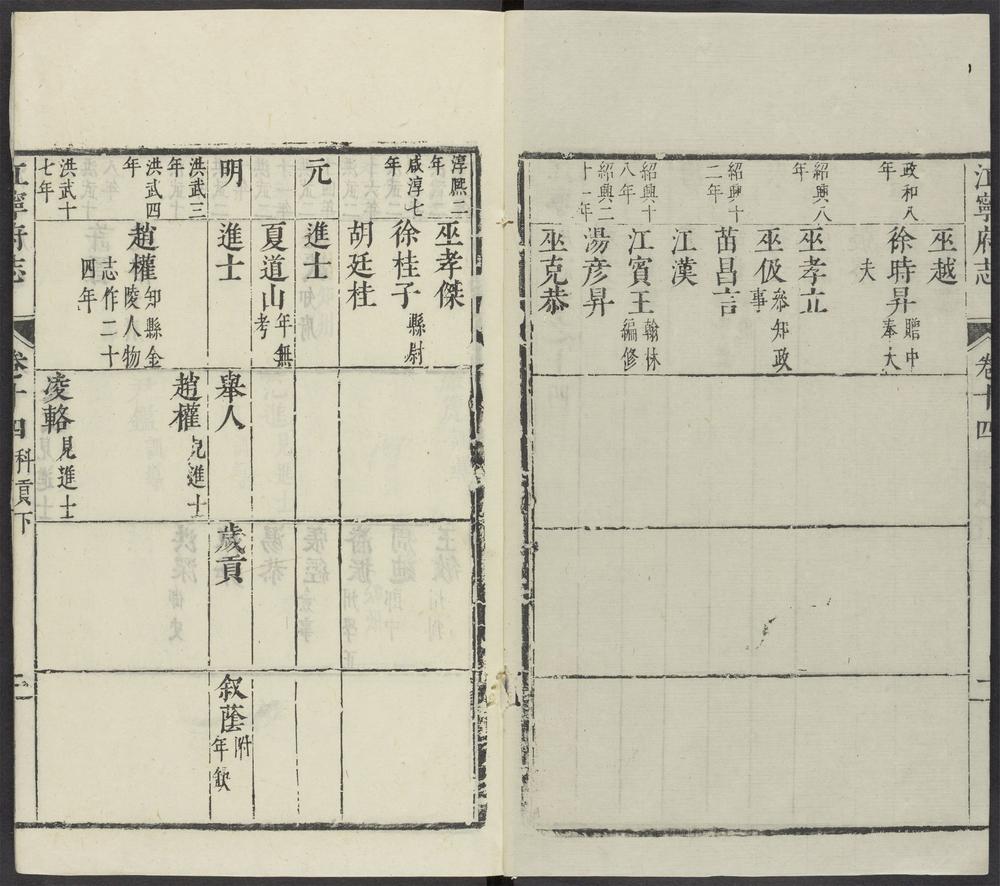 江寧府志 卷十四
巫越
政和八年 徐時昇 贈中奉大夫
紹興八年 巫孝立
巫伋 叅知政事
紹興十二年 苗昌言
江漢
紹興十八年 江賓王 翰林編修
紹興二十一年 湯彥昇
巫克恭
淳熙二年 巫孝傑
咸淳七年 徐桂子 縣尉
胡廷桂
元 進士
夏道山 年無考
明 進士 舉人 歲貢 叙蔭 附年缺
洪武三年 趙權 見進士
洪武四年 趙權 知縣金陵人物志作二十四年
洪武十七年 凌輅 見進士
江寧府志 卷十四 科貢下